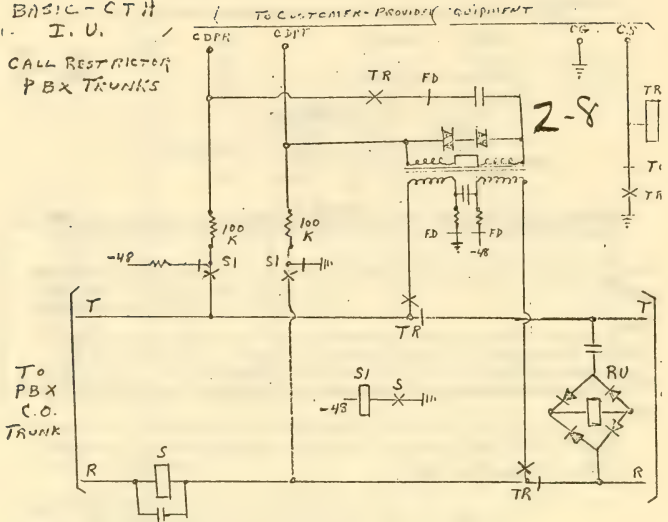 BASIC - CTH
I. U.
CALL RESTRICTOR
PBX TRUNKS
TO CUSTOMER-PROVIDED EQUIPMENT
CDPR CDPT CG CS
TR FD
2-8
TR
TR
100 K
100 K
FD FD
-48
-48 S1 S1
T TR T
TO PBX C.O. TRUNK
S1 S
-48
RU
R S TR R